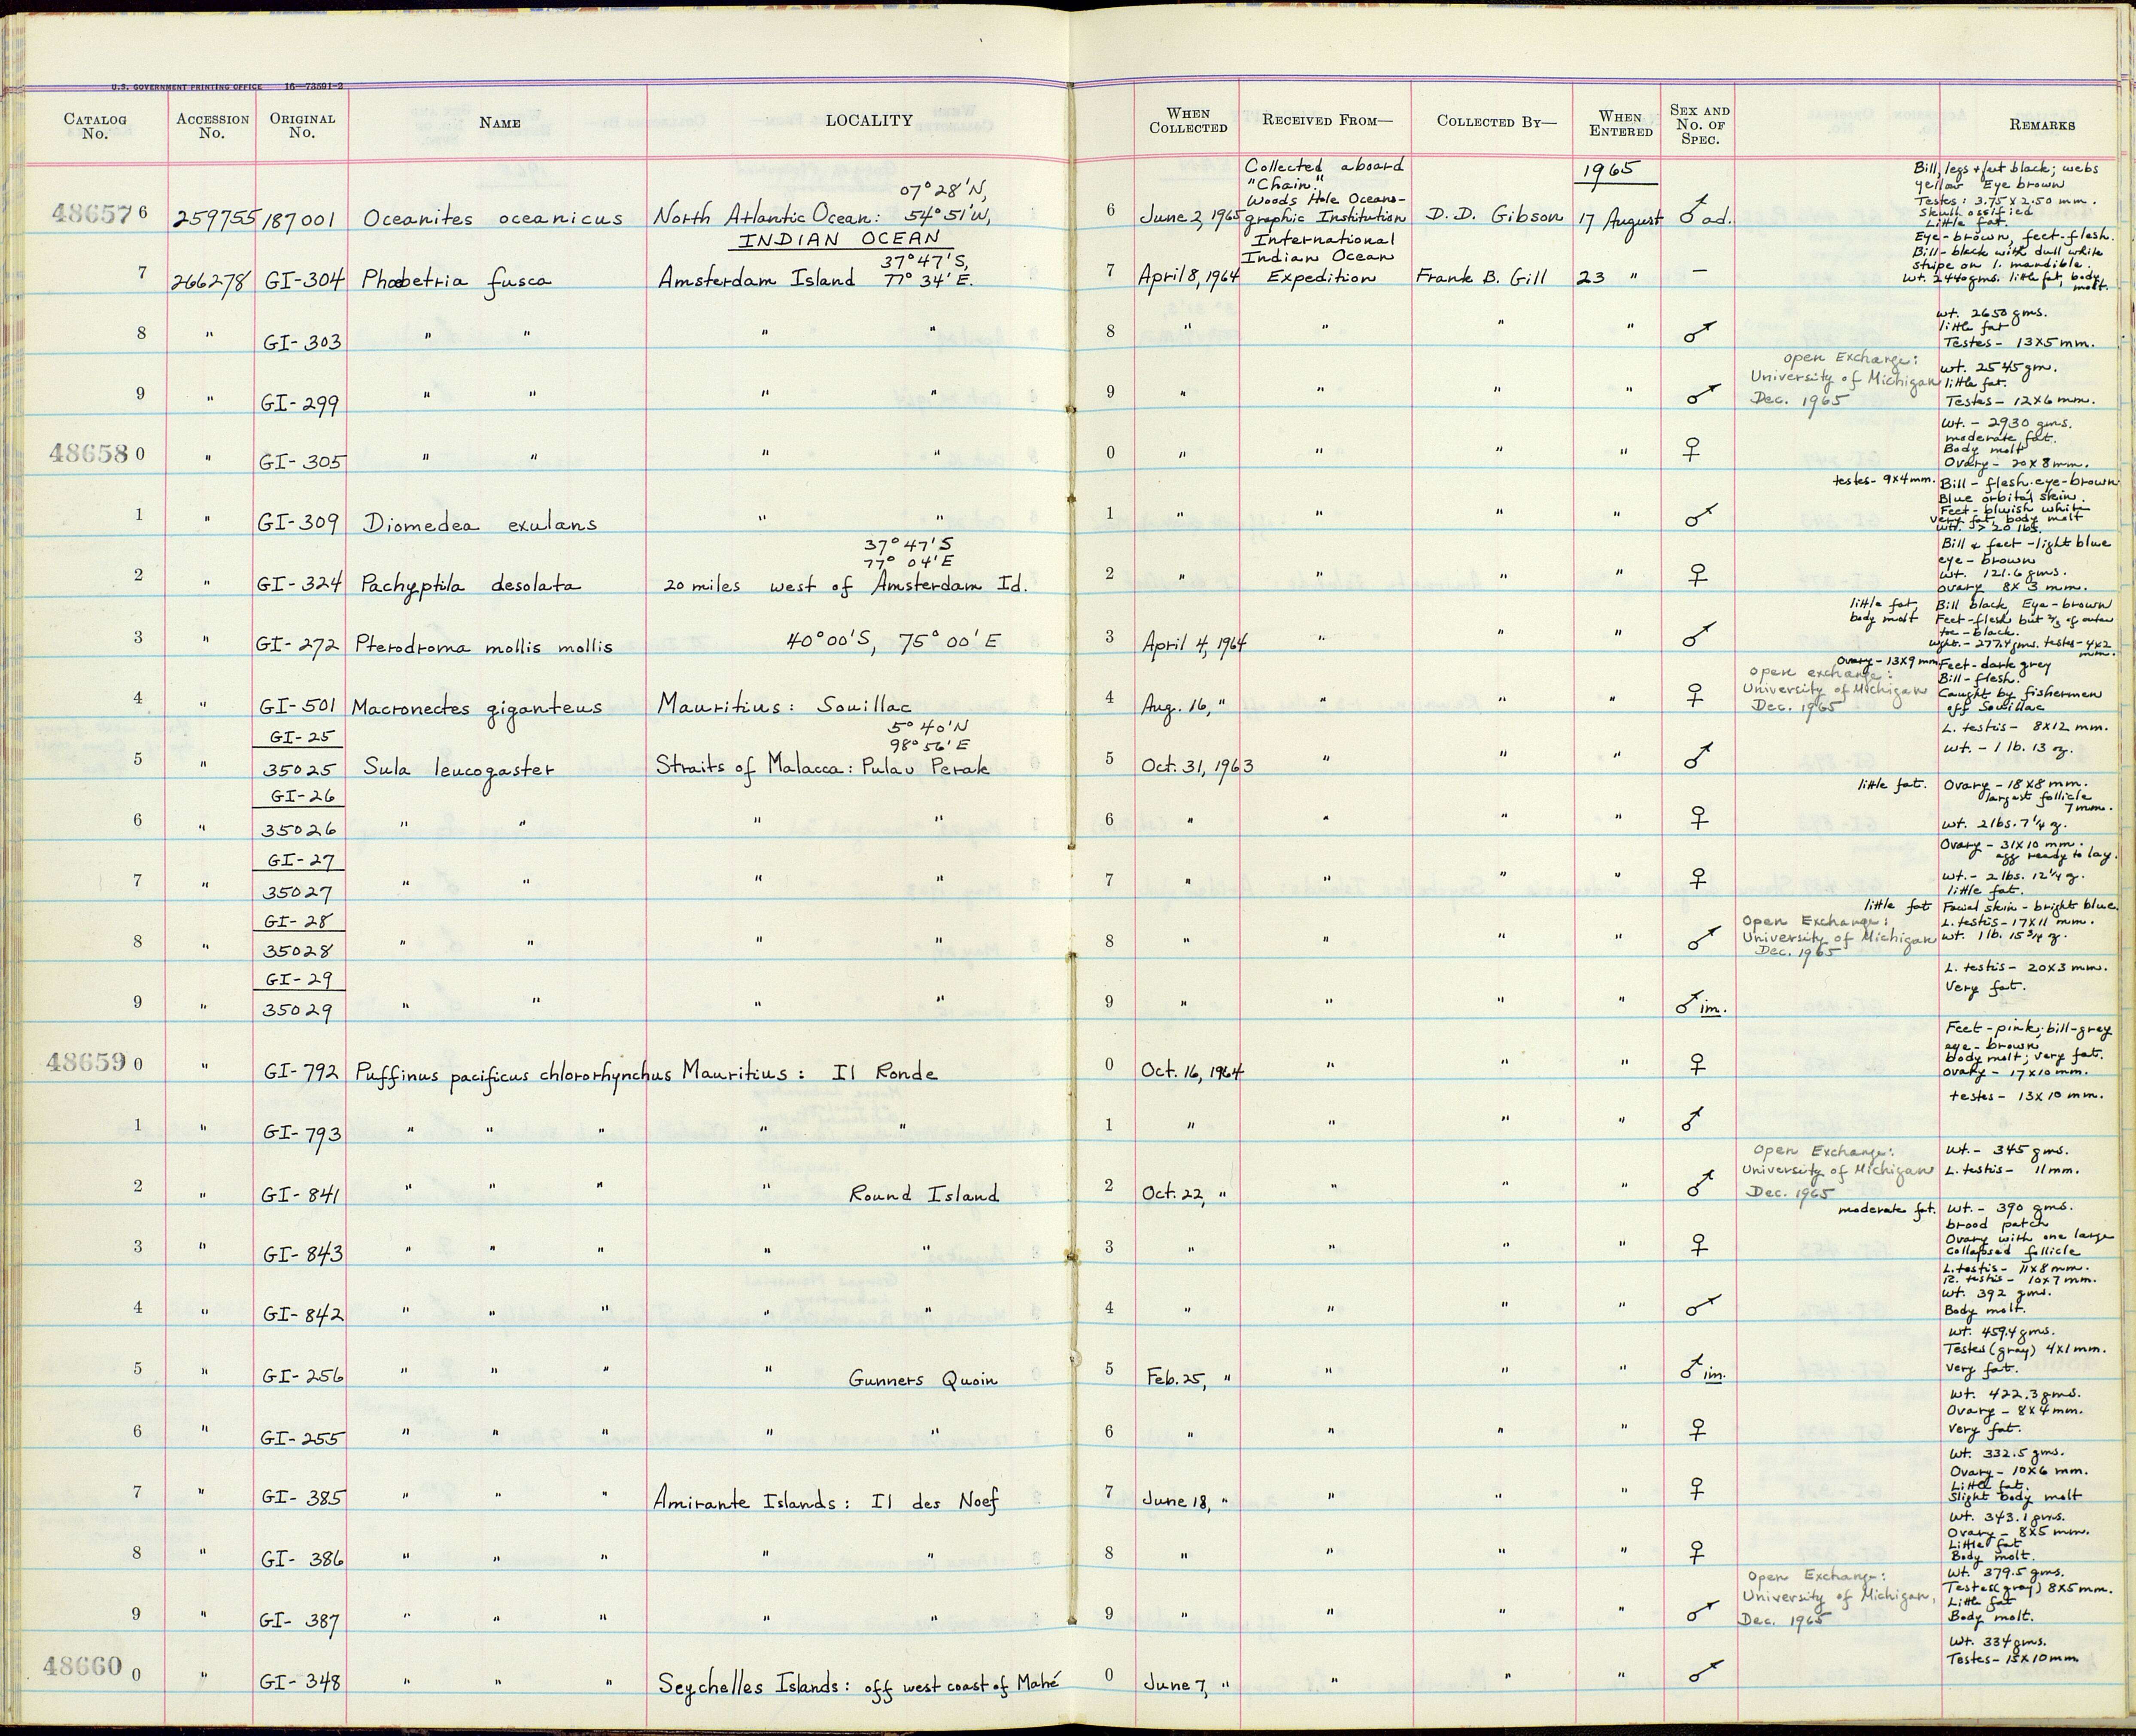 U.S. GOVERNMENT PRINTING OFFICE 16—73591-2
CATALOG No. ACCESSION No. ORIGINAL No. NAME LOCALITY WHEN COLLECTED RECEIVED FROM— COLLECTED BY— WHEN ENTERED SEX AND No. OF SPEC. REMARKS
Collected aboard 1965 Bill, legs + feet black; webs
07°28'N, "Chain." yellow Eye brown
Woods Hole Oceano- Testes: 3.75 x 2.50 mm.
48657 6 259755 187001 Oceanites oceanicus North Atlantic Ocean: 54°51'W, 6 June 2, 1965 graphic Institution D.D. Gibson 17 August ♂ ad. Skull ossified
Little fat.
INDIAN OCEAN International Eye-brown, feet-flesh.
37°47'S, Indian Ocean Bill-black with dull white
stripe on l. mandible.
7 266278 GI-304 Phoebetria fusca Amsterdam Island 77°34'E. 7 April 8, 1964 Expedition Frank B. Gill 23 " — Wt. 2440gms. little fat, body
molt.
wt. 2650 gms.
little fat
8 " GI-303 " " " " 8 " " " " ♂ Testes- 13X5 mm.
open Exchange: wt. 2545 gm.
University of Michigan little fat.
9 " GI-299 " " " " 9 " " " " ♂ Dec. 1965 Testes- 12X6 mm.
Wt. - 2930 gms.
moderate fat.
Body molt
48658 0 " GI-305 " " " " 0 " " " " ♀ Ovary- 20X8mm.
testes- 9X4mm. Bill - flesh. eye-brown
Blue orbital skin.
Feet- bluish white
very fat, body molt
1 " GI-309 Diomedea exulans " " 1 " " " " ♂ Wt. > 20 lbs.
37°47'S Bill & feet -light blue
77° 04'E eye - brown
wt. 121.6 gms.
2 " GI-324 Pachyptila desolata 20 miles west of Amsterdam Id. 2 " " " " ♀ ovary 8X3 mm.
little fat, Bill black, Eye-brown
body molt Feet-flesh but 2/3 of outer
toe - black.
3 " GI-272 Pterodroma mollis mollis 40°00'S, 75°00'E 3 April 4, 1964 " " " ♂ wght.- 277.4gms. testes-4x2
mm.
Ovary-13X9 mm Feet-dark grey
open exchange: Bill-flesh.
University of Michigan Caught by fishermen
4 " GI-501 Macronectes giganteus Mauritius: Souillac 4 Aug. 16, " " " " ♀ Dec. 1965 off Souillac
GI-25 5°40'N L. testis- 8X12 mm.
98°56'E wt. - 1 lb. 13 oz.
5 " 35025 Sula leucogaster Straits of Malacca: Pulau Perak 5 Oct. 31, 1963 " " " ♂
GI-26 little fat. Ovary-18X8mm.
largest follicle
7mm.
6 " 35026 " " " " 6 " " " " ♀ wt. 2lbs. 7 1/4 oz.
GI-27 Ovary - 31X10 mm.
egg ready to lay.
wt.- 2 lbs. 12 1/4 oz.
7 " 35027 " " " " 7 " " " " ♀ little fat.
GI-28 little fat Facial skin-bright blue.
Open Exchange: L. testis-17X11 mm.
University of Michigan wt. 1 lb. 15 3/4 oz.
8 " 35028 " " " " 8 " " " " ♂ Dec. 1965
GI-29 L. testis- 20X3 mm.
Very fat.
9 " 35029 " " " " 9 " " " " ♂ im.
Feet-pink; bill-grey
eye - brown
body molt; very fat.
48659 0 " GI-792 Puffinus pacificus chlororhynchus Mauritius: Il Ronde 0 Oct. 16, 1964 " " " ♀ ovary- 17X10mm.
testes- 13X10 mm.
1 " GI-793 " " " " " 1 " " " " ♂
Open Exchange: Wt.- 345 gms.
University of Michigan L. testis- 11mm.
2 " GI-841 " " " " Round Island 2 Oct. 22, " " " " ♂ Dec. 1965
moderate fat. Wt. - 390 gms.
brood patch
Ovary with one large
3 " GI-843 " " " " " 3 " " " " ♀ collapsed follicle
L. testis- 11X8mm.
R. testis- 10X7mm.
wt. 392 gms.
4 " GI-842 " " " " " 4 " " " " ♂ Body molt.
Wt. 459.4 gms.
Testes (gray) 4X1mm.
5 " GI-256 " " " " Gunners Quoin 5 Feb. 25, " " " " ♂ im. Very fat.
Wt. 422.3gms.
Ovary- 8X4mm.
6 " GI-255 " " " " " 6 " " " " ♀ Very fat.
Wt. 332.5 gms.
Ovary- 10X6 mm.
Little fat.
7 " GI-385 " " " Amirante Islands: Il des Noef 7 June 18, " " " " ♀ Slight body molt
Wt. 343.1 gms.
Ovary- 8X5mm.
Little fat
8 " GI-386 " " " " " 8 " " " " ♀ Body molt.
Open Exchange: Wt. 379.5 gms.
University of Michigan, Testes(gray) 8X5mm.
Little fat
9 " GI-387 " " " " " 9 " " " " ♂ Dec. 1965 Body molt.
Wt. 334gms.
Testes- 15X10mm
48660 0 " GI-348 " " " Seychelles Islands: off west coast of Mahé 0 June 7, " " " " ♂